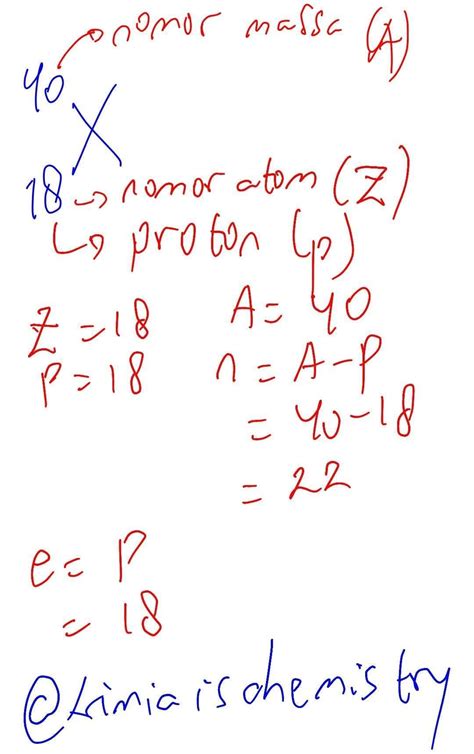 nomor massa (A)
40
X
18 → nomor atom (Z)
↳ proton (p)
Z = 18
P = 18
A = 40
n = A - P
= 40 - 18
= 22
e = P
= 18
@kimiaischemistry